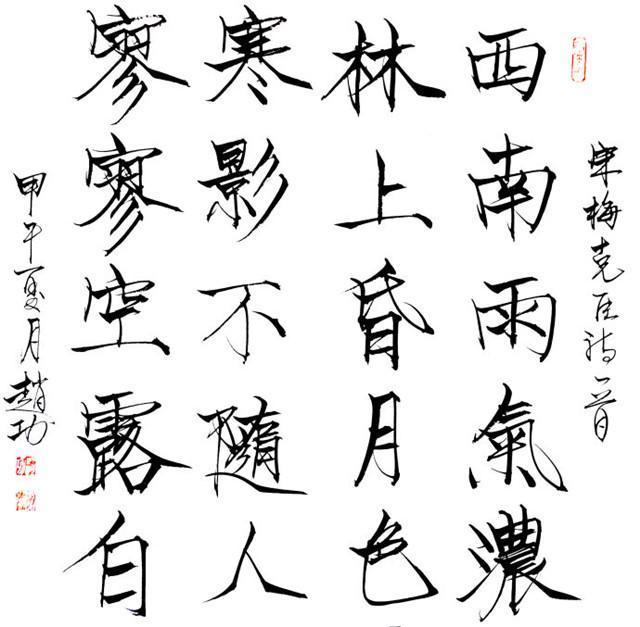 宋梅堯臣詩一首
西南雨氣濃
林上昏月色
寒影不隨人
寥寥空露白
甲午夏月趙功